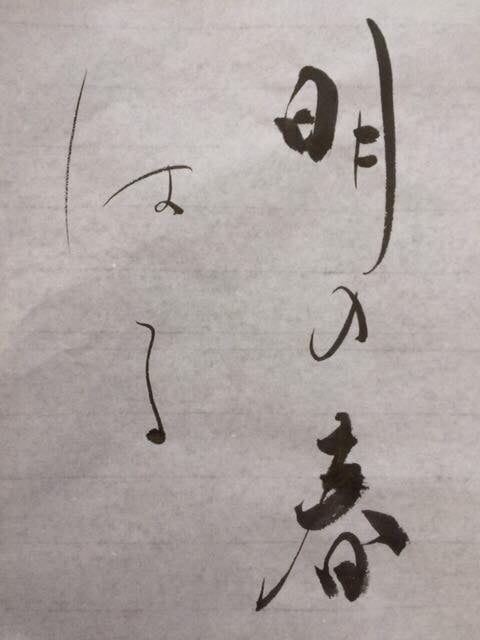 明の春
はる